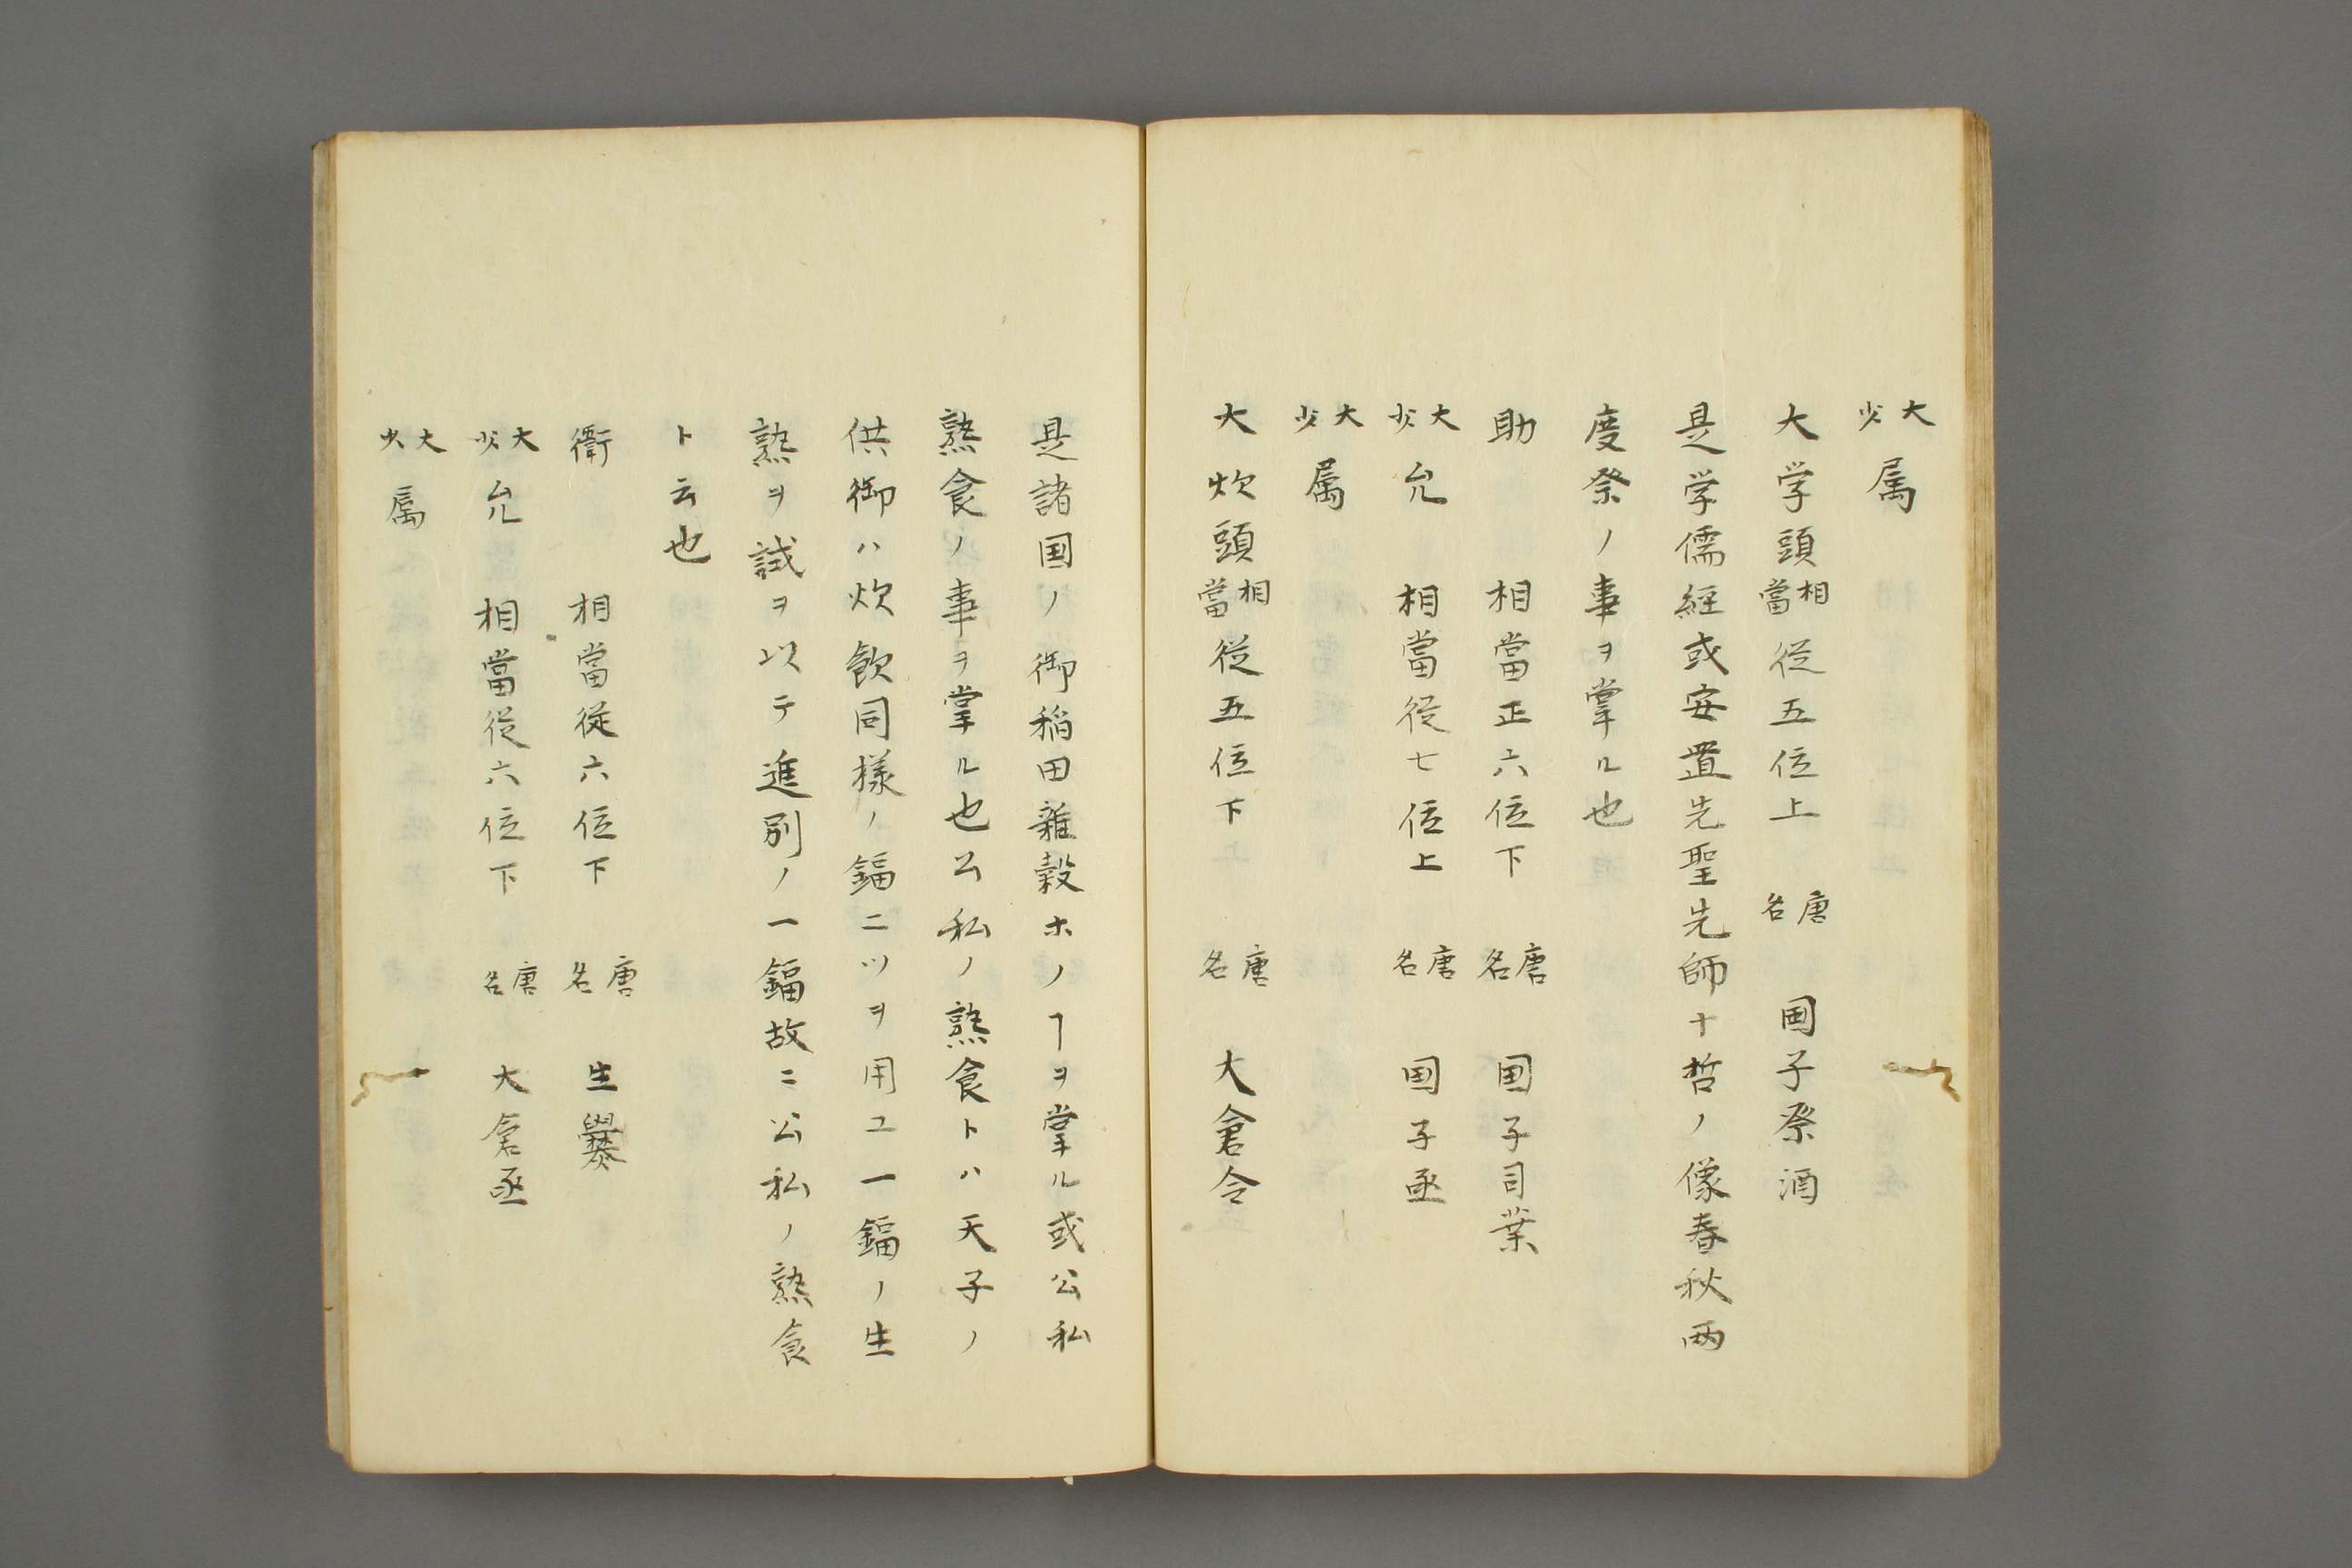 大少属
大学頭相當従五位上 唐名 国子祭酒
是学儒経或安置先聖先師十哲ノ像春秋両
度祭ノ事ヲ掌ル也
助 相當正六位下 唐名 国子司業
大少允 相當従七位上 唐名 国子丞
大少属
大炊頭相當従五位下 唐名 大倉令
是諸国ノ御稲田雜穀ホノヿヲ掌ル或公私
熟食ノ事ヲ掌ル也公私ノ熟食トハ天子ノ
供御ハ炊飲同様ノ鍢ニツヲ用ユ一鍢ノ生
熟ヲ試ヲ以テ進別ノ一鍢故ニ公私ノ熟食
ト云也
衞 相當従六位下 唐名 生爨
大少允 相當従六位下 唐名 大倉丞
大少属